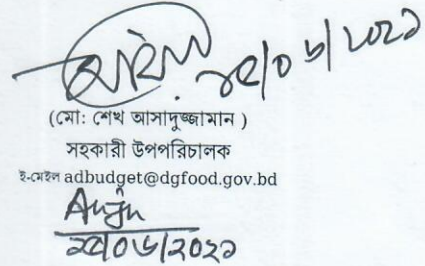 ২৫/০৬/২০২১
(মো: শেখ আসাদুজ্জামান )
সহকারী উপপরিচালক
ই-মেইল adbudget@dgfood.gov.bd
২৫/০৬/২০২১